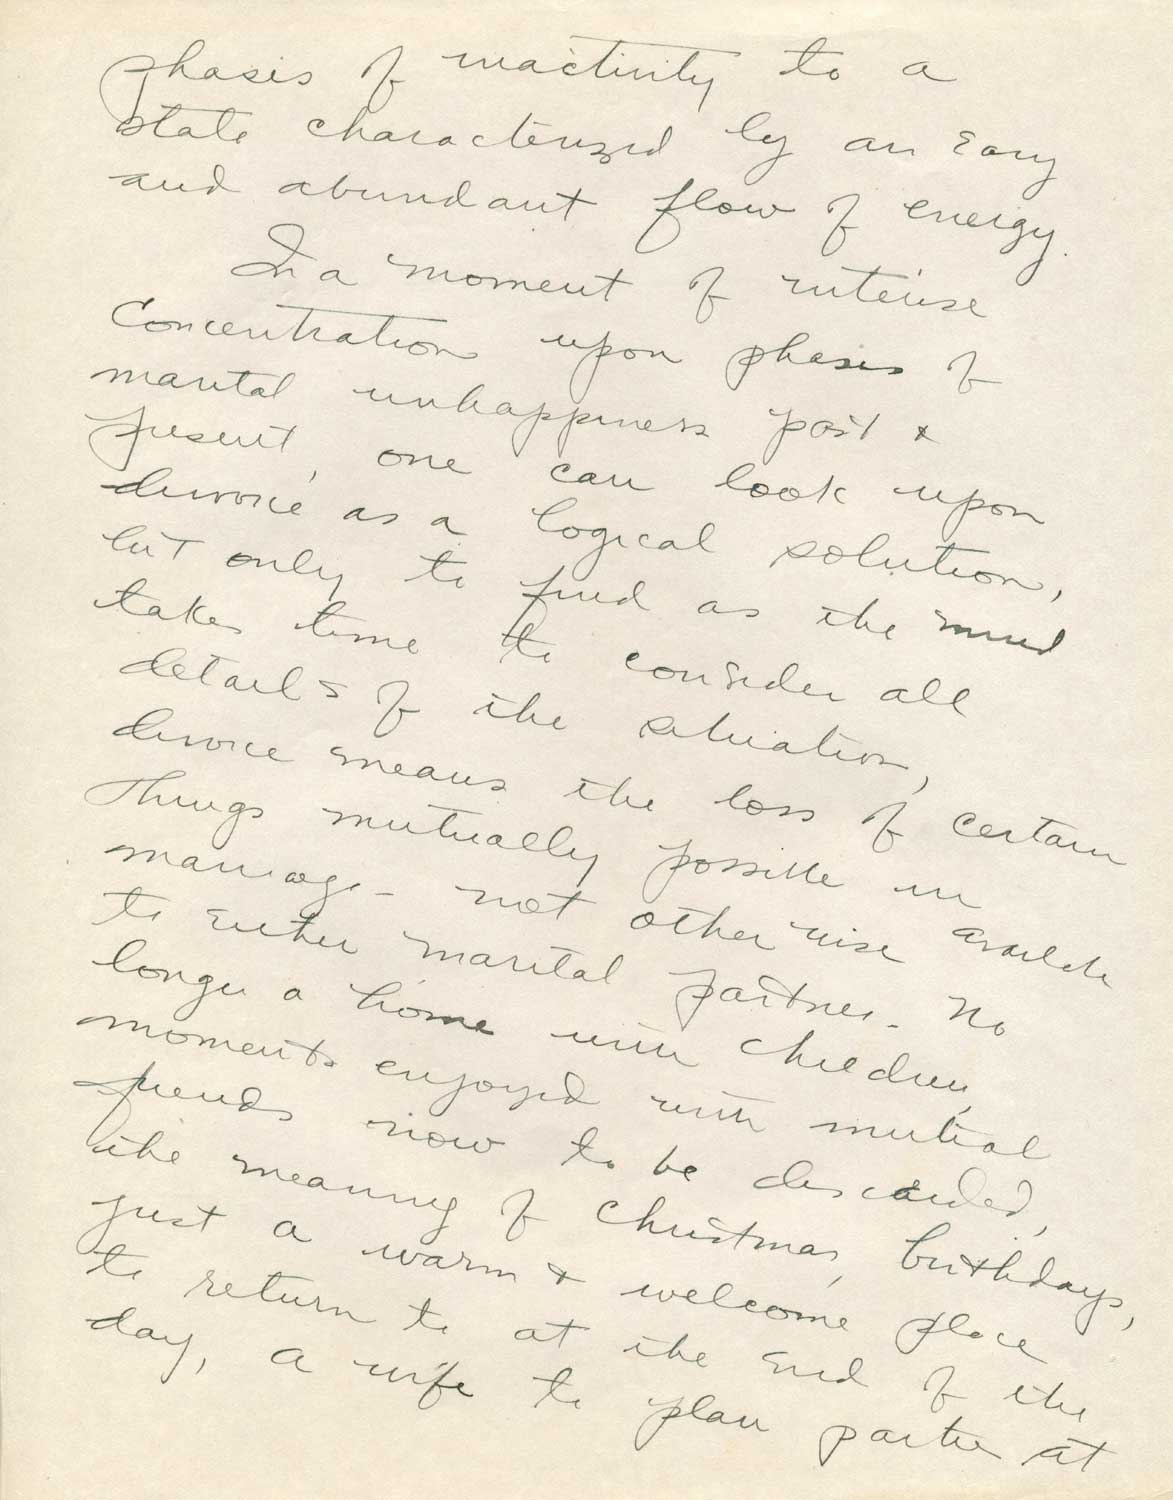 phases of inactivity to a
state characterized by an easy
and abundant flow of energy.
In a moment of intense
concentration upon phases of
marital unhappiness past &
present, one can look upon
divorce as a logical solution,
but only to find as the mind
takes time to consider all
details of the situation,
divorce means the loss of certain
things mutually possible in
marriage - not otherwise available
to either marital partner. No
longer a home with children,
moments enjoyed with mutual
friends now to be discarded,
the meaning of Christmas, birthdays,
just a warm & welcome place
to return to at the end of the
day, a wife to plan parties at